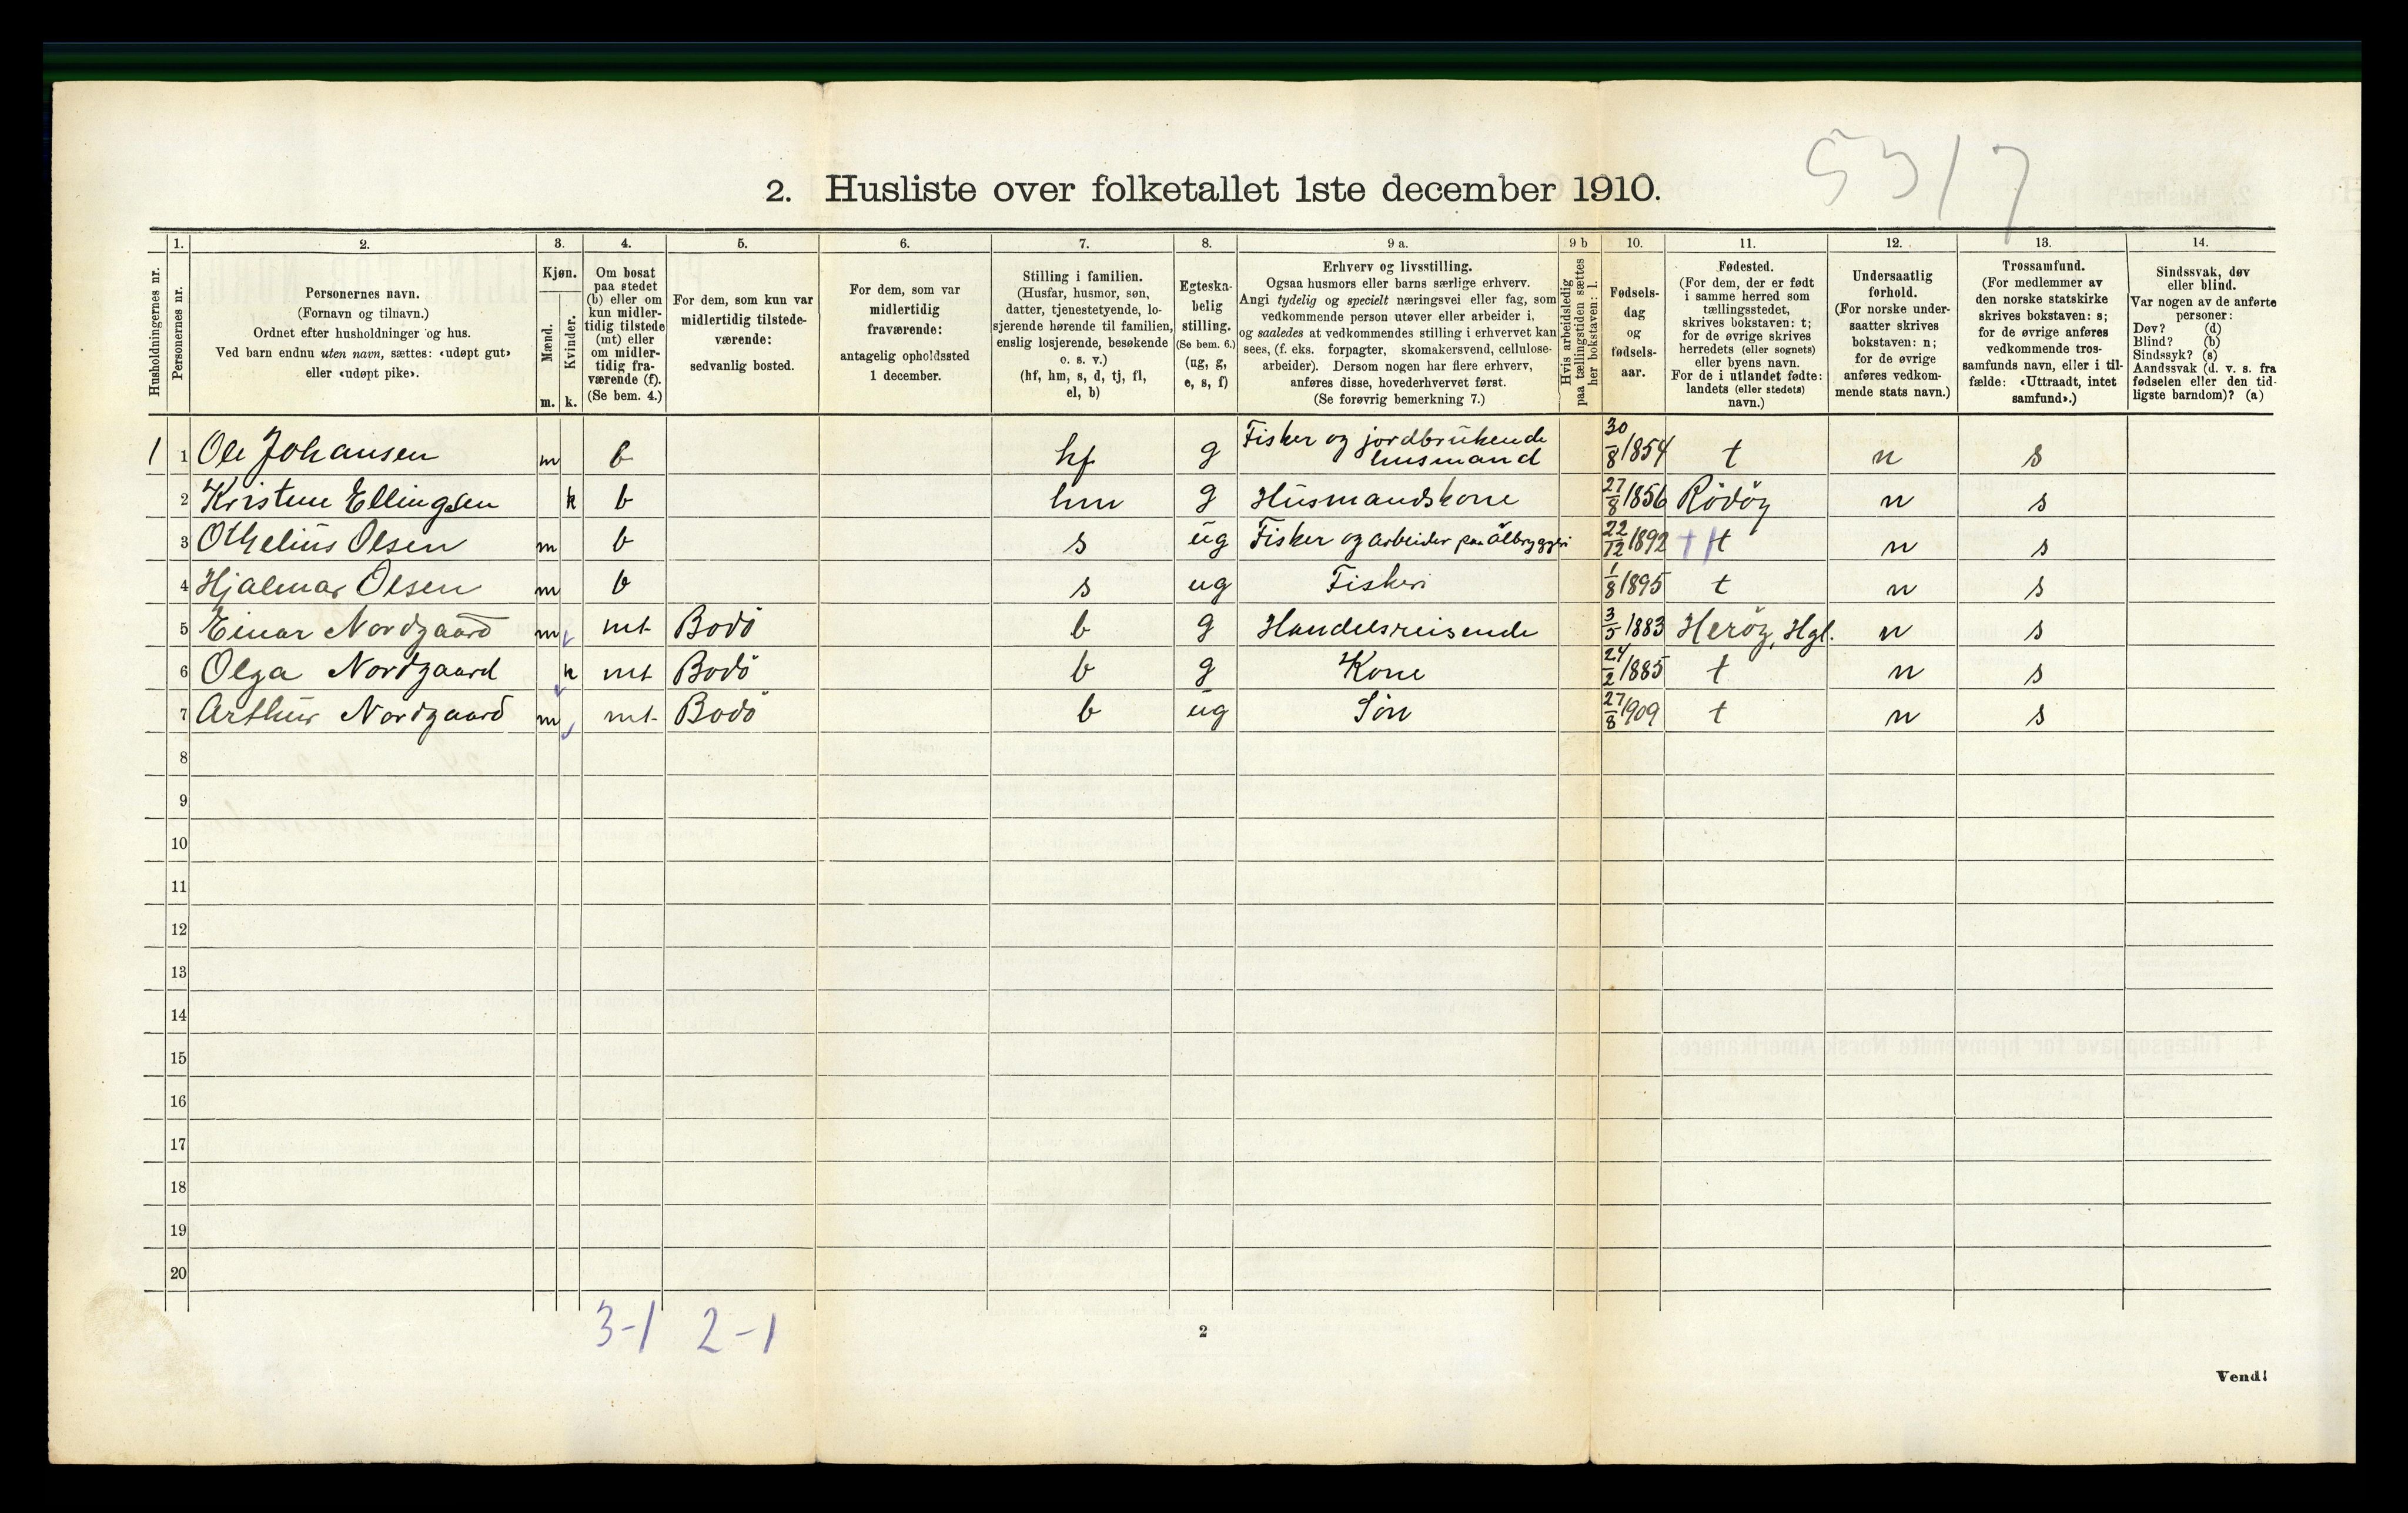 5317
2. Husliste over folketallet 1ste december 1910.
Husholdningernes nr.
1. Personernes nr.
2. Personernes navn.
(Fornavn og tilnavn.)
Ordnet efter husholdninger og hus.
Ved barn endnu uten navn, sættes: «udøpt gut»
eller «udøpt pike».
3. Kjøn.
Mænd. m.
Kvinder. k.
4. Om bosat
paa stedet
(b) eller om
kun midler-
tidig tilstede
(mt) eller
om midler-
tidig fra-
værende (f).
(Se bem. 4.)
5. For dem, som kun var
midlertidig tilstede-
værende:
sedvanlig bosted.
6. For dem, som var
midlertidig
fraværende:
antagelig opholdssted
1 december.
7. Stilling i familien.
(Husfar, husmor, søn,
datter, tjenestetyende, lo-
sjerende hørende til familien,
enslig losjerende, besøkende
o. s. v.)
(hf, hm, s, d, tj, fl,
el, b)
8. Egteska-
belig
stilling.
(Se bem. 6.)
(ug, g,
e, s, f)
9 a. Erhverv og livsstilling.
Ogsaa husmors eller barns særlige erhverv.
Angi tydelig og specielt næringsvei eller fag, som
vedkommende person utøver eller arbeider i,
og saaledes at vedkommendes stilling i erhvervet kan
sees, (f. eks. forpagter, skomakersvend, cellulose-
arbeider). Dersom nogen har flere erhverv,
anføres disse, hovederhvervet først.
(Se forøvrig bemerkning 7.)
9 b Hvis arbeidsledig
paa tællingstiden sættes
her bokstaven: l.
10. Fødsels-
dag
og
fødsels-
aar.
11. Fødested.
(For dem, der er født
i samme herred som
tællingsstedet,
skrives bokstaven: t;
for de øvrige skrives
herredets (eller sognets)
eller byens navn.
For de i utlandet fødte:
landets (eller stedets)
navn.)
12. Undersaatlig
forhold.
(For norske under-
saatter skrives
bokstaven: n;
for de øvrige
anføres vedkom-
mende stats navn.)
13. Trossamfund.
(For medlemmer av
den norske statskirke
skrives bokstaven: s;
for de øvrige anføres
vedkommende tros-
samfunds navn, eller i til-
fælde: «Uttraadt, intet
samfund».)
14. Sindssvak, døv
eller blind.
Var nogen av de anførte
personer:
Døv? (d)
Blind? (b)
Sindssyk? (s)
Aandssvak (d. v. s. fra
fødselen eller den tid-
ligste barndom)? (a)
1 1 Ole Johansen m b hf g Fisker og jordbrukende husmand 30/8 1854 t n s
2 Kristine Ellingsen k b hm g Husmandskone 27/8 1856 Rödöy n s
3 Othelius Olsen m b s ug Fisker og arbeider paa ölbryggeri 22/12 1892 t n s
4 Hjalmar Olsen m b s ug Fiskeri 1/8 1895 t n s
5 Einar Nordgaard m mt Bodö b g Handelsreisende 3/5 1883 Heröy, Hgl. n s
6 Olga Nordgaard k mt Bodö b g Kone 24/2 1885 t n s
7 Arthur Nordgaard m mt Bodö b ug Sön 27/8 1909 t n s
8
9
10
11
12
13
14
15
16
17
18
19
20
3-1 2-1
2
Vend!